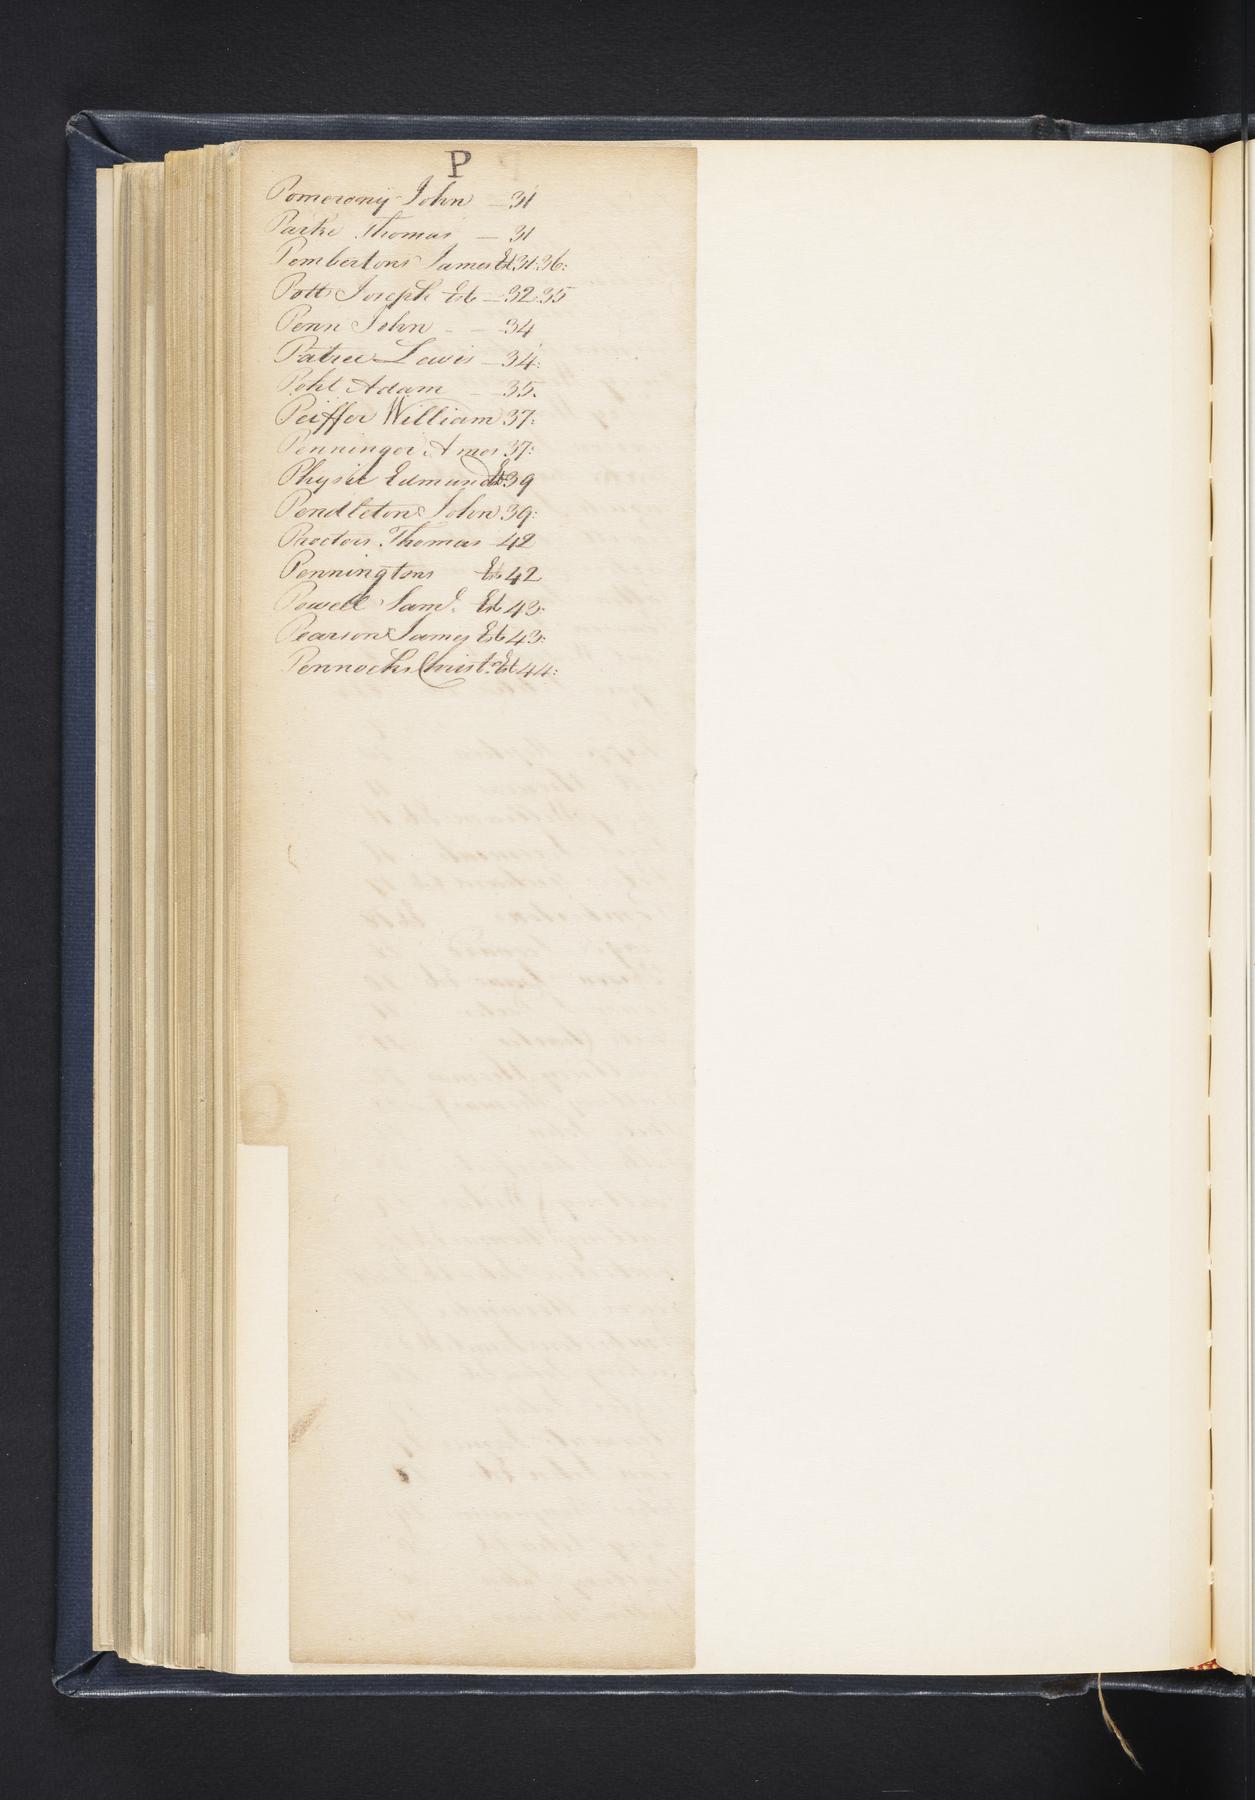 P
Pomerony John — 31
Parke Thomas — 31
Pembertons James Est 31:36:
Potts Joseph Est — 32.35
Penn John - - 34
Patree Lewis — 34:
Pohl Adam - 35.
Peiffer William 37:
Penninger Amos 37:
Physic Edmund Est 39
Pendleton John 39:
Proctors Thomas 42
Penningtons Est 42
Powell Saml. Est 43:
Pearson James Est 43:
Pennocks Christr. Est 44: